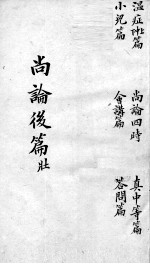 温症朮篇
小児篇
尚論四時
會講篇
真中等篇
答問篇
尚論後篇 壯